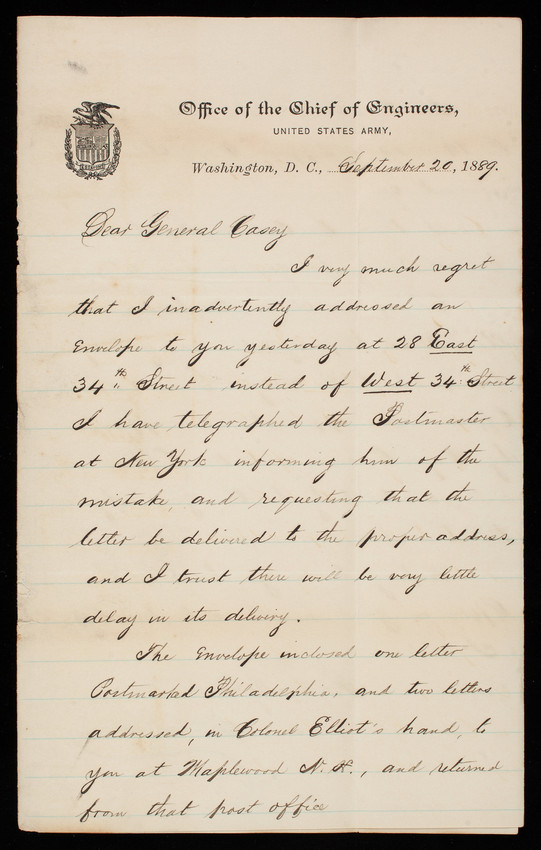 Office of the Chief of Engineers,
UNITED STATES ARMY,
Washington, D. C., September 20, 1889.
Dear General Casey
I very much regret
that I inadvertently addressed an
Envelope to you yesterday at 28 East
34th Street instead of West 34th Street
I have telegraphed the Postmaster
at New York informing him of the
mistake, and requesting that the
letter be delivered to the proper address,
and I trust there will be very little
delay in its delivery.
The Envelope inclosed one letter
Postmarked Philadelphia, and two letters
addressed, in Colonel Elliot's hand, to
you at Maplewood N. H., and returned
from that post office